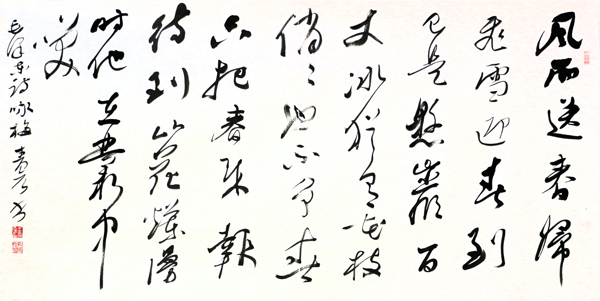 风雨送春歸
飛雪迎春到
已是懸崖百
丈冰犹有花枝
俏〻也不争春
只把春来報
待到山花爛漫
时他在叢中
笑
毛泽东诗咏梅